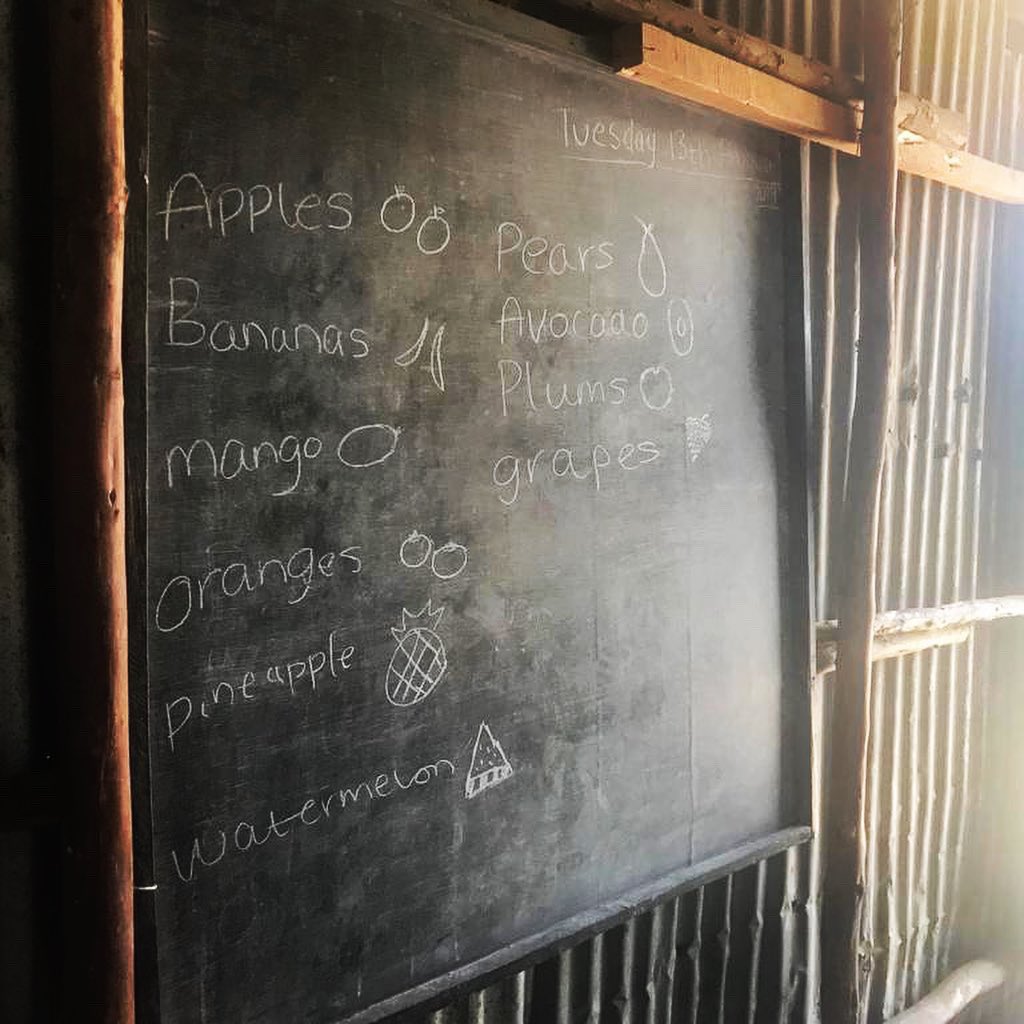 Tuesday 13th
Apples
Bananas
mango
oranges
pineapple
watermelon
Pears
Avocado
Plums
grapes